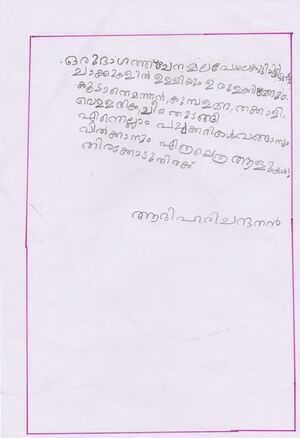 ഒരുഭാഗത്ത് ചേന മലപോലെകൂട്ടിയിട്ടിട്ടുണ്ട്
ചാക്കുകളിൽ ഉള്ളിയും ഉരുളക്കിഴങ്ങും.
കൂടാതെമത്തൻ, കുമ്പളങ്ങ, തക്കാളി,
വെള്ളരിക്ക,ചീര തുടങ്ങി
എന്തെല്ലാം പച്ചക്കറികൾവാങ്ങാനും
വിൽക്കാനും എത്രയെത്ര ആളുകൾ.
തിരക്കോടുതിരക്ക്
ആദിഹരിചന്ദനൻ